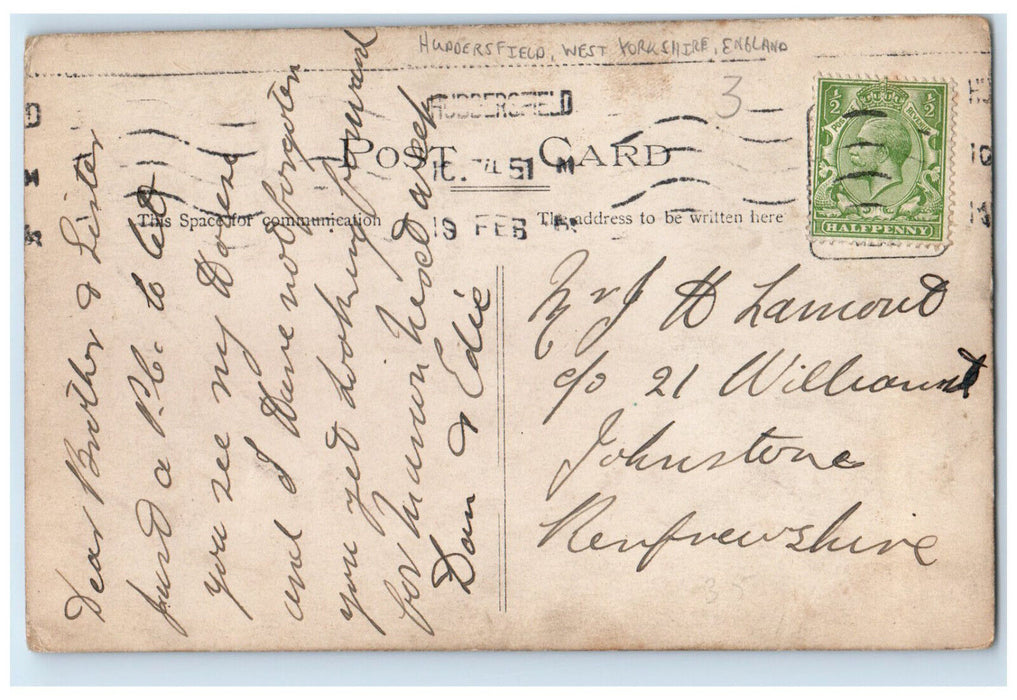 HUDDERSFIELD, WEST YORKSHIRE, ENGLAND
3
HUDDERSFIELD
POST CARD
19 FEB
½ ½
HALFPENNY
This Space for communication
The address to be written here
Dear Brother & Sister
Just a P.C. to let
you see my Dan
and I have not forgoten
you yet looking forward
for Human next week
Dan & Edie
Mr J H Lamont
c/o 21 William St
Johnstone
Renfrewshire
35